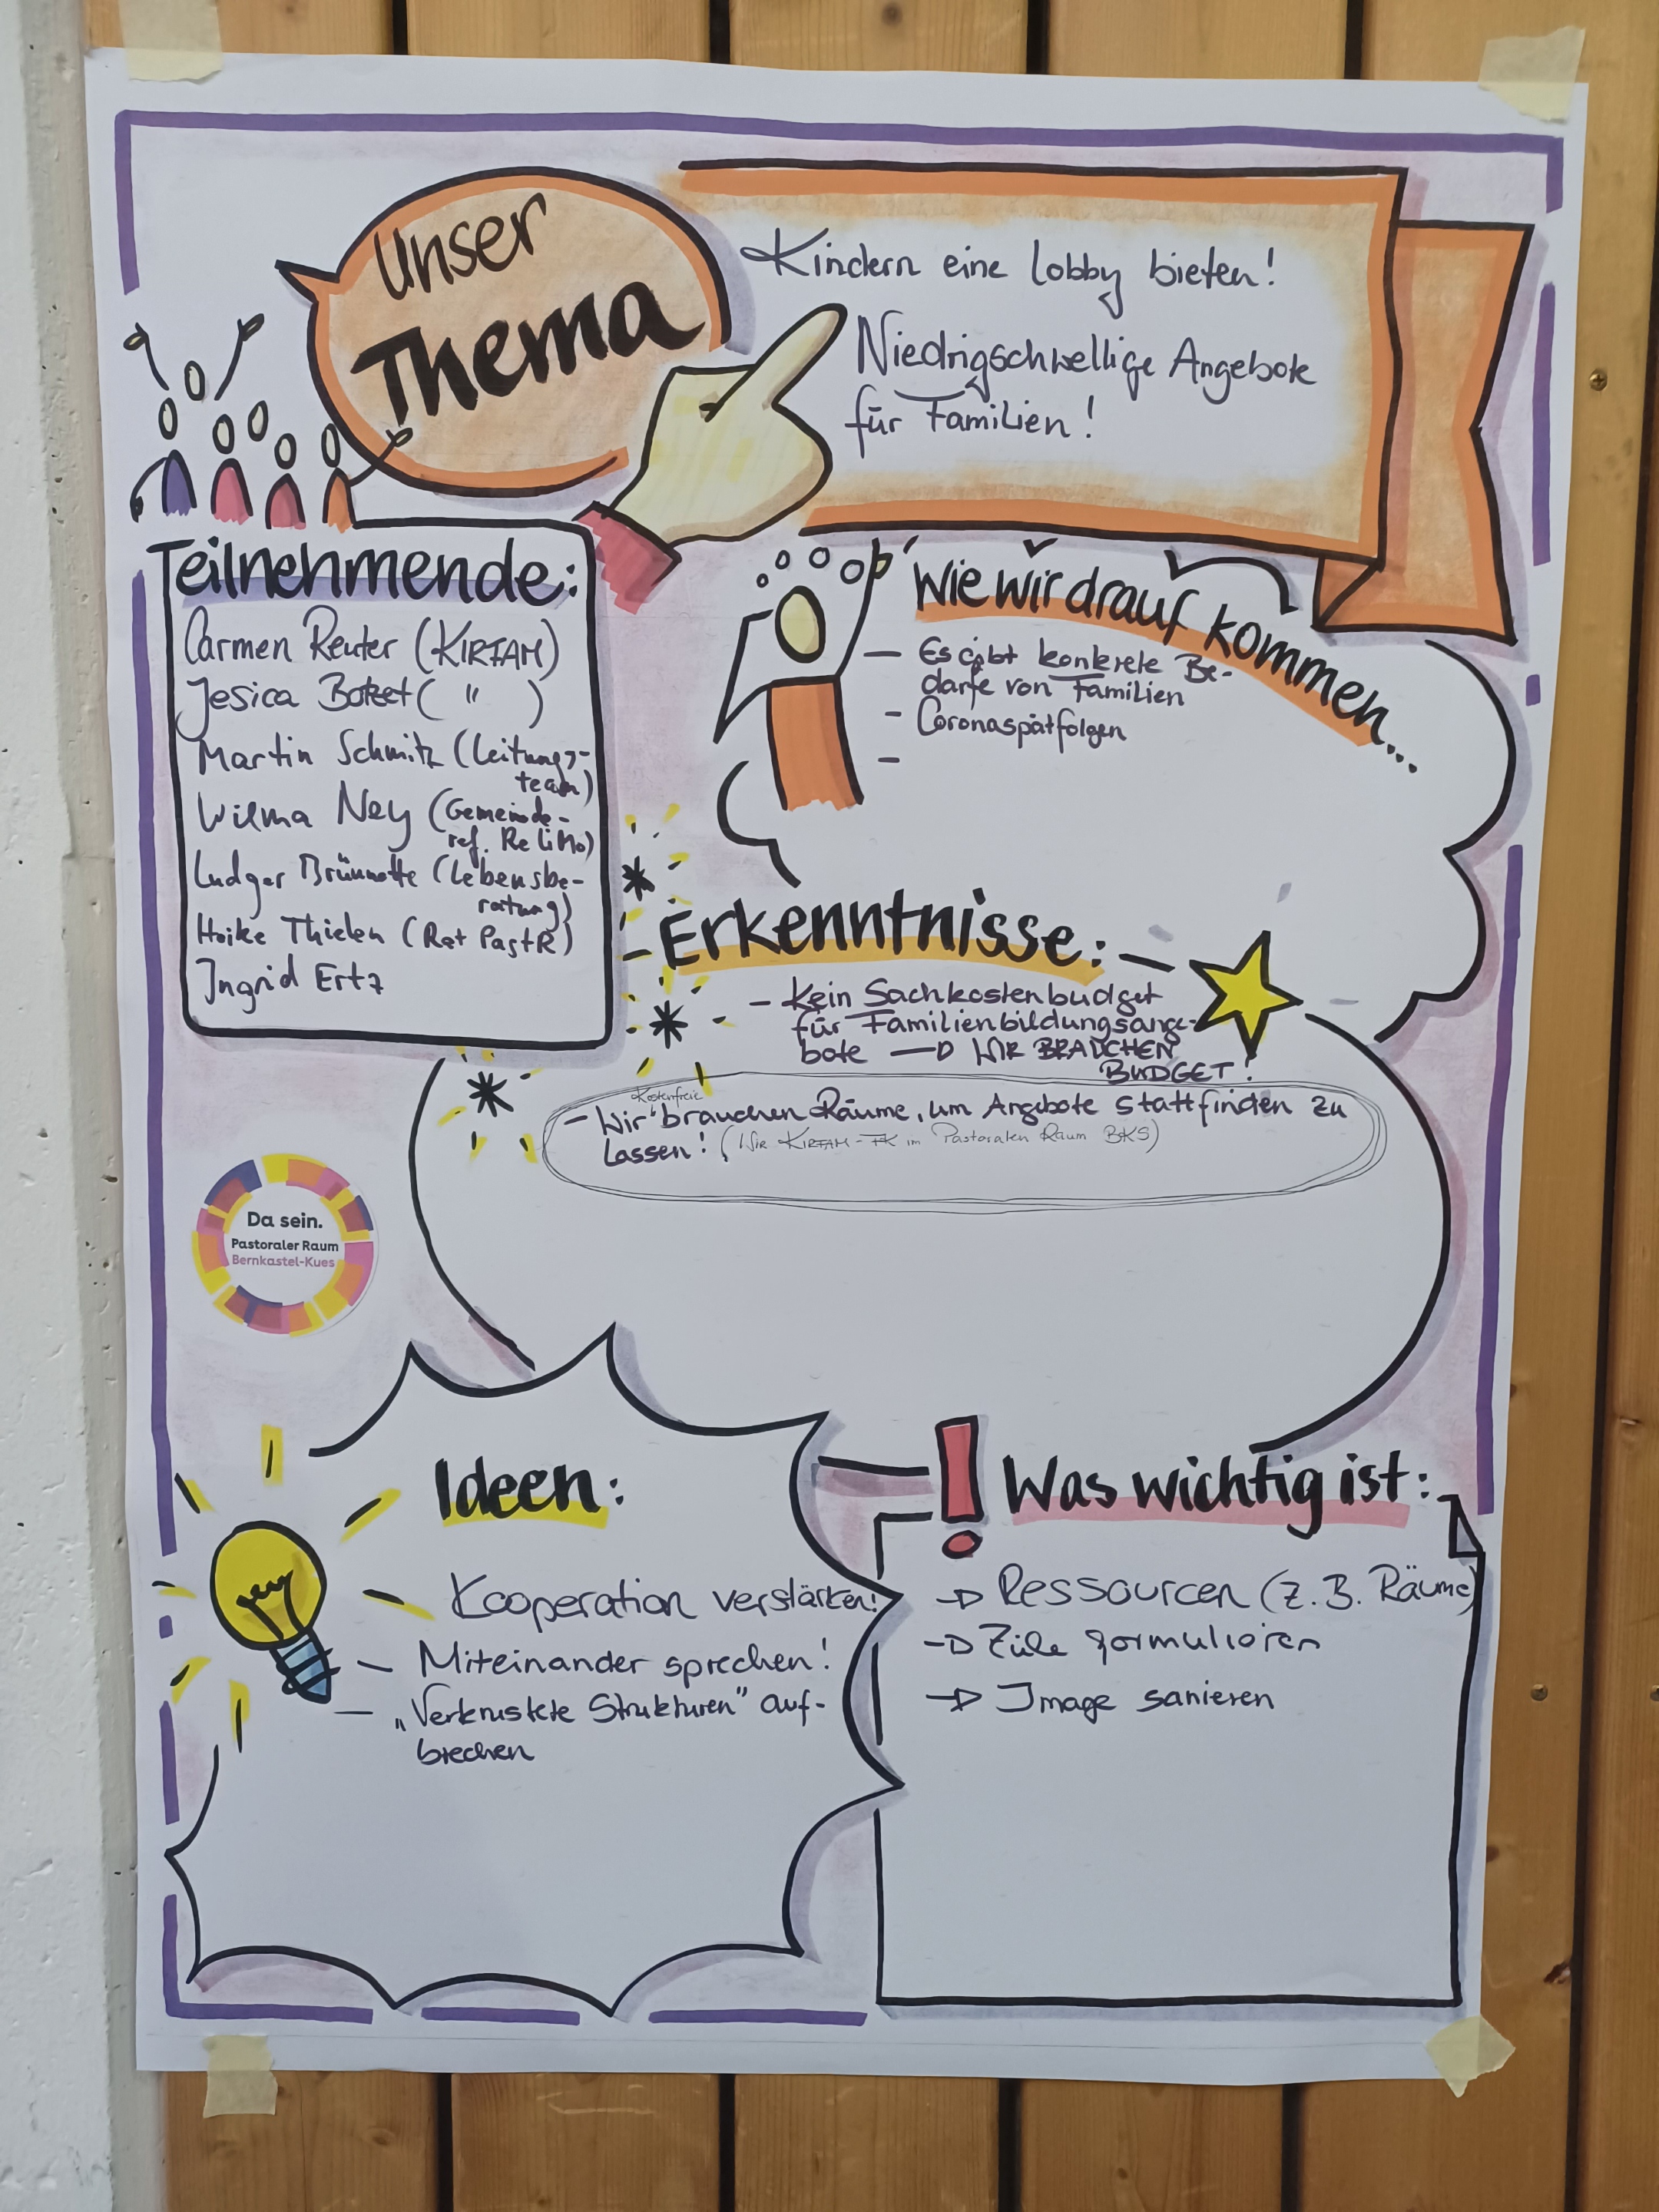 Unser
Thema
Kindern eine Lobby bieten!
Niedrigschwellige Angebote
für Familien!
Teilnehmende:
Carmen Reuter (KIRFAM)
Jesica Botzet ( " )
Martin Schmitz (Leitungs-
team)
Wilma Ney (Gemeinde-
ref. ReLiMo)
Ludger Brünnette (Lebensbe-
ratung)
Heike Thielen (Rat PastR)
Ingrid Ertz
Wie wir drauf kommen...
- Es gibt konkrete Be-
darfe von Familien
- Coronaspätfolgen
-
Erkenntnisse:
- Kein Sachkostenbudget
für Familienbildungsange-
bote → WIR BRAUCHEN
BUDGET!
Kostenfreie
- Wir brauchen Räume, um Angebote stattfinden zu
lassen! (Wir KIRFAM-FK im Pastoralen Raum BKS)
Da sein.
Pastoraler Raum
Bernkastel-Kues
Ideen:
Kooperation verstärken!
- Miteinander sprechen!
- „Verkrustete Strukturen" auf-
brechen
! Was wichtig ist:
→ Ressourcen (z.B. Räume)
→ Ziele formulieren
→ Image sanieren